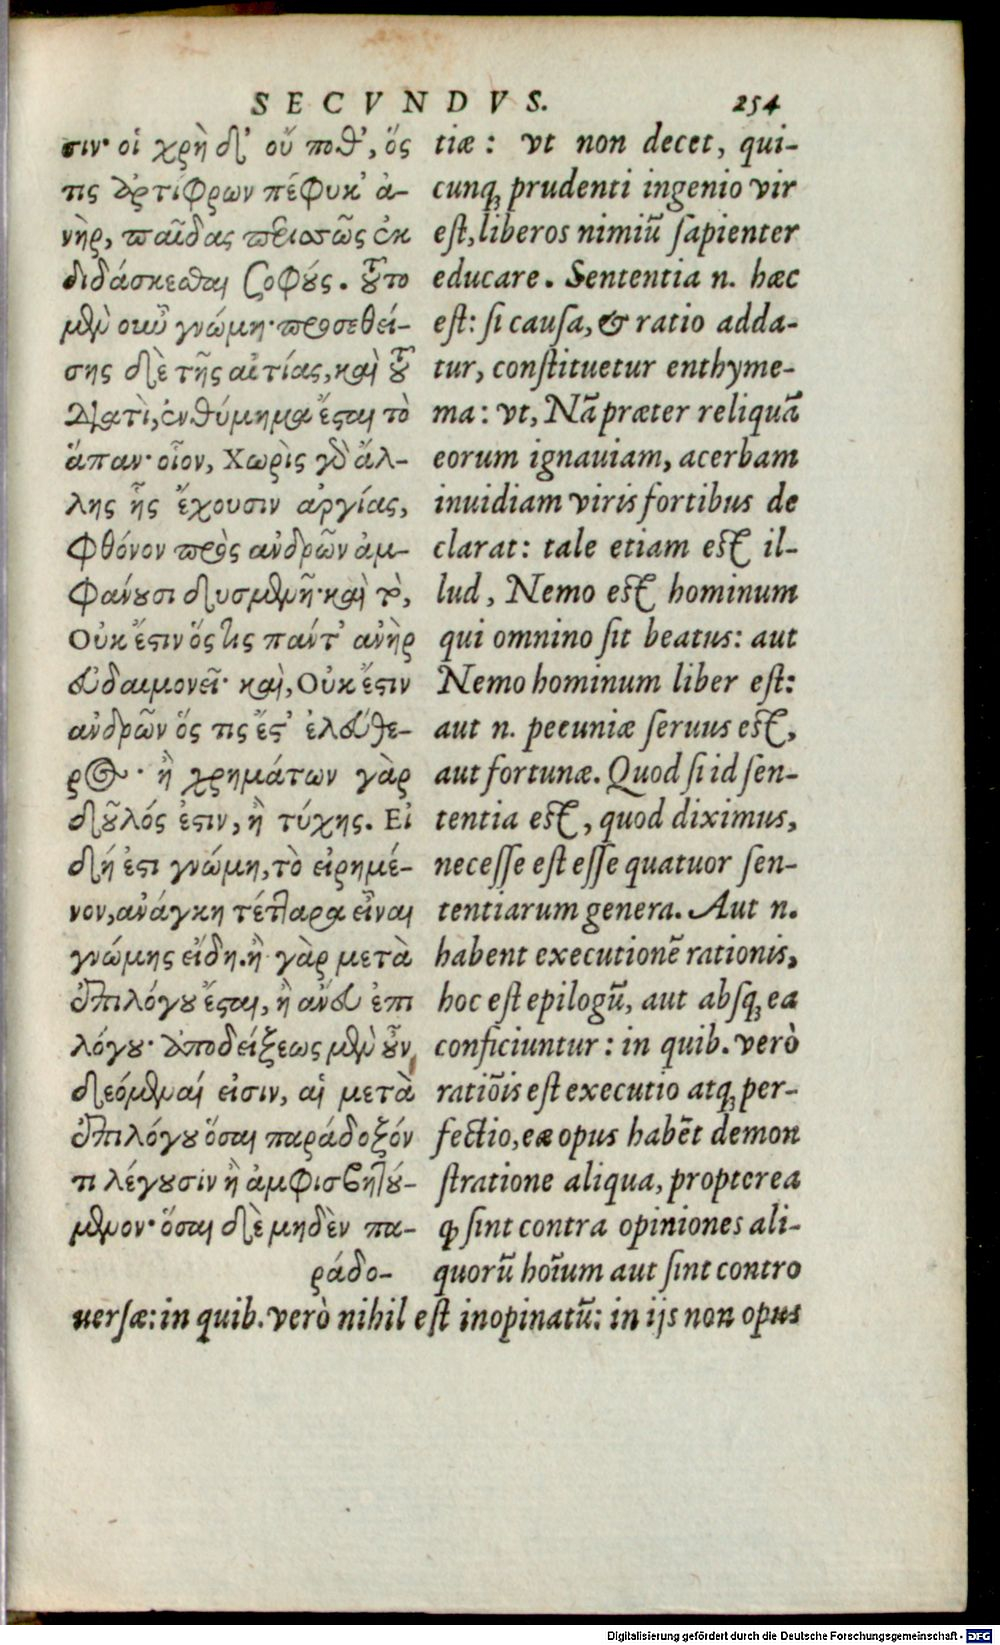 SECVNDVS. 254
σιν· οἱ χρὴ δ' οὔ ποθ', ὅς
τις ἀρτίφρων πέφυκ' ἀ-
νὴρ, παῖδας περισσῶς ἐκ
διδάσκεσθαι σοφούς. τοῦτο
μὲν οὖν γνώμη· προσεθεί-
σης δὲ τῆς αἰτίας, καὶ τοῦ
διατὶ, ἐνθύμημα ἔσται τὸ
ἅπαν· οἷον, Χωρὶς γὰρ ἄλ-
λης ἧς ἔχουσιν ἀργίας,
φθόνον πρὸς ἀνδρῶν ἀμ-
φάνουσι δυσμενῆ· καὶ τὸ,
Οὐκ ἔστιν ὅς τις πάντ' ἀνὴρ
εὐδαιμονεῖ· καὶ, Οὐκ ἔστιν
ἀνδρῶν ὅς τις ἔστ' ἐλεύθε-
ρος· ἢ χρημάτων γὰρ
δοῦλός ἐστιν, ἢ τύχης. Εἰ
δή ἐστι γνώμη, τὸ εἰρημέ-
νον, ἀνάγκη τέτταρα εἶναι
γνώμης εἴδη. ἢ γὰρ μετὰ
ἐπιλόγου ἔσται, ἢ ἄνευ ἐπι
λόγου· ἀποδείξεως μὲν οὖν
δεόμεναί εἰσιν, αἱ μετὰ
ἐπιλόγου ὅσαι παράδοξόν
τι λέγουσιν ἢ ἀμφισβητού-
μενον· ὅσαι δὲ μηδὲν πα-
ράδο-
tiæ: vt non decet, qui-
cunq; prudenti ingenio vir
est, liberos nimiũ sapienter
educare. Sententia n. hæc
est: si causa, & ratio adda-
tur, constituetur enthyme-
ma: vt, Nã præter reliquã
eorum ignauiam, acerbam
inuidiam viris fortibus de
clarat: tale etiam est il-
lud, Nemo est hominum
qui omnino sit beatus: aut
Nemo hominum liber est:
aut n. pecuniæ seruus est,
aut fortunæ. Quod si id sen-
tentia est, quod diximus,
necesse est esse quatuor sen-
tentiarum genera. Aut n.
habent executionẽ rationis,
hoc est epilogũ, aut absq; ea
conficiuntur: in quib. verò
ratiõis est executio atq; per-
fectio, eæ opus habẽt demon
stratione aliqua, propterea
ꝙ sint contra opiniones ali-
quorũ hoĩum aut sint contro
uersæ: in quib. verò nihil est inopinatũ: in ijs non opus
Digitalisierung gefördert durch die Deutsche Forschungsgemeinschaft - DFG